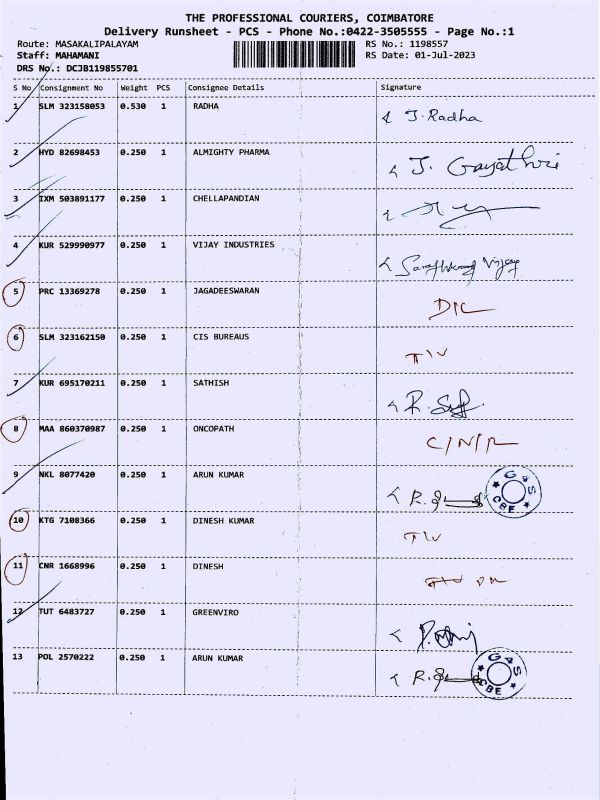 THE PROFESSIONAL COURIERS, COIMBATORE
Delivery Runsheet - PCS - Phone No.:0422-3505555 - Page No.:1
Route: MASAKALIPALAYAM RS No.: 1198557
Staff: MAHAMANI RS Date: 01-Jul-2023
DRS No.: DCJB119855701
S No Consignment No Weight PCS Consignee Details Signature
1 SLM 323158053 0.530 1 RADHA J.Radha
2 HYD 82698453 0.250 1 ALMIGHTY PHARMA J. Gayathri
3 IXM 503891177 0.250 1 CHELLAPANDIAN
4 KUR 529990977 0.250 1 VIJAY INDUSTRIES
5 PRC 13369278 0.250 1 JAGADEESWARAN D/L
6 SLM 323162150 0.250 1 CIS BUREAUS
7 KUR 695170211 0.250 1 SATHISH
8 MAA 860370987 0.250 1 ONCOPATH C/N/R
9 NKL 8077420 0.250 1 ARUN KUMAR G4S CBE
10 KTG 7108366 0.250 1 DINESH KUMAR
11 CNR 1668996 0.250 1 DINESH
12 TUT 6483727 0.250 1 GREENVIRO
13 POL 2570222 0.250 1 ARUN KUMAR G4S CBE